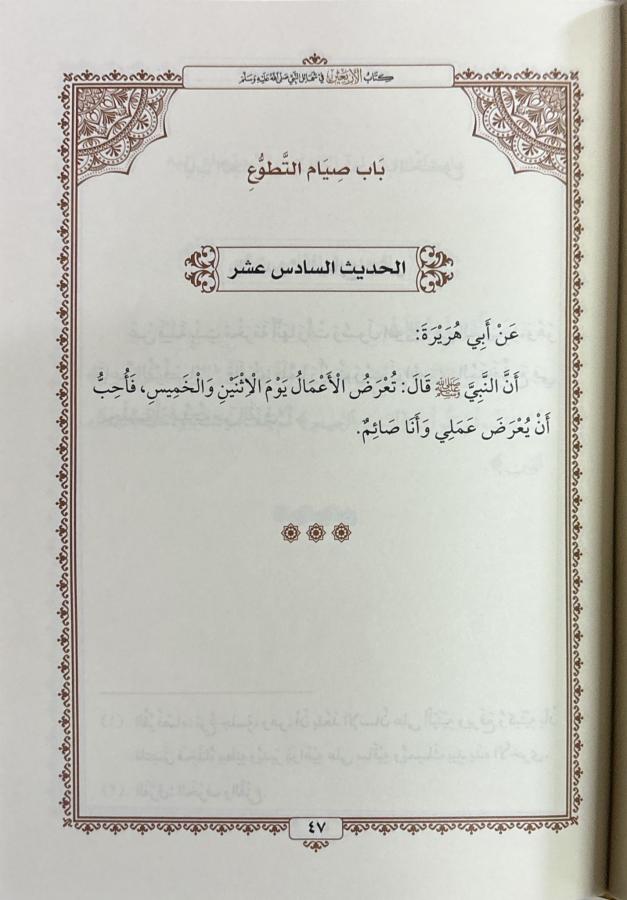 كتاب الأربعين في شمائل النبي صلى الله عليه وسلم
بَاب صِيَام التَّطوُّعِ
الحديث السادس عشر
عَنْ أَبِي هُرَيْرَةَ:
أَنَّ النَّبِيَّ ﷺ قَالَ: تُعْرَضُ الْأَعْمَالُ يَوْمَ الِاثْنَيْنِ وَالْخَمِيسِ، فَأُحِبُّ
أَنْ يُعْرَضَ عَمَلِي وَأَنَا صَائِمٌ.
٤٧